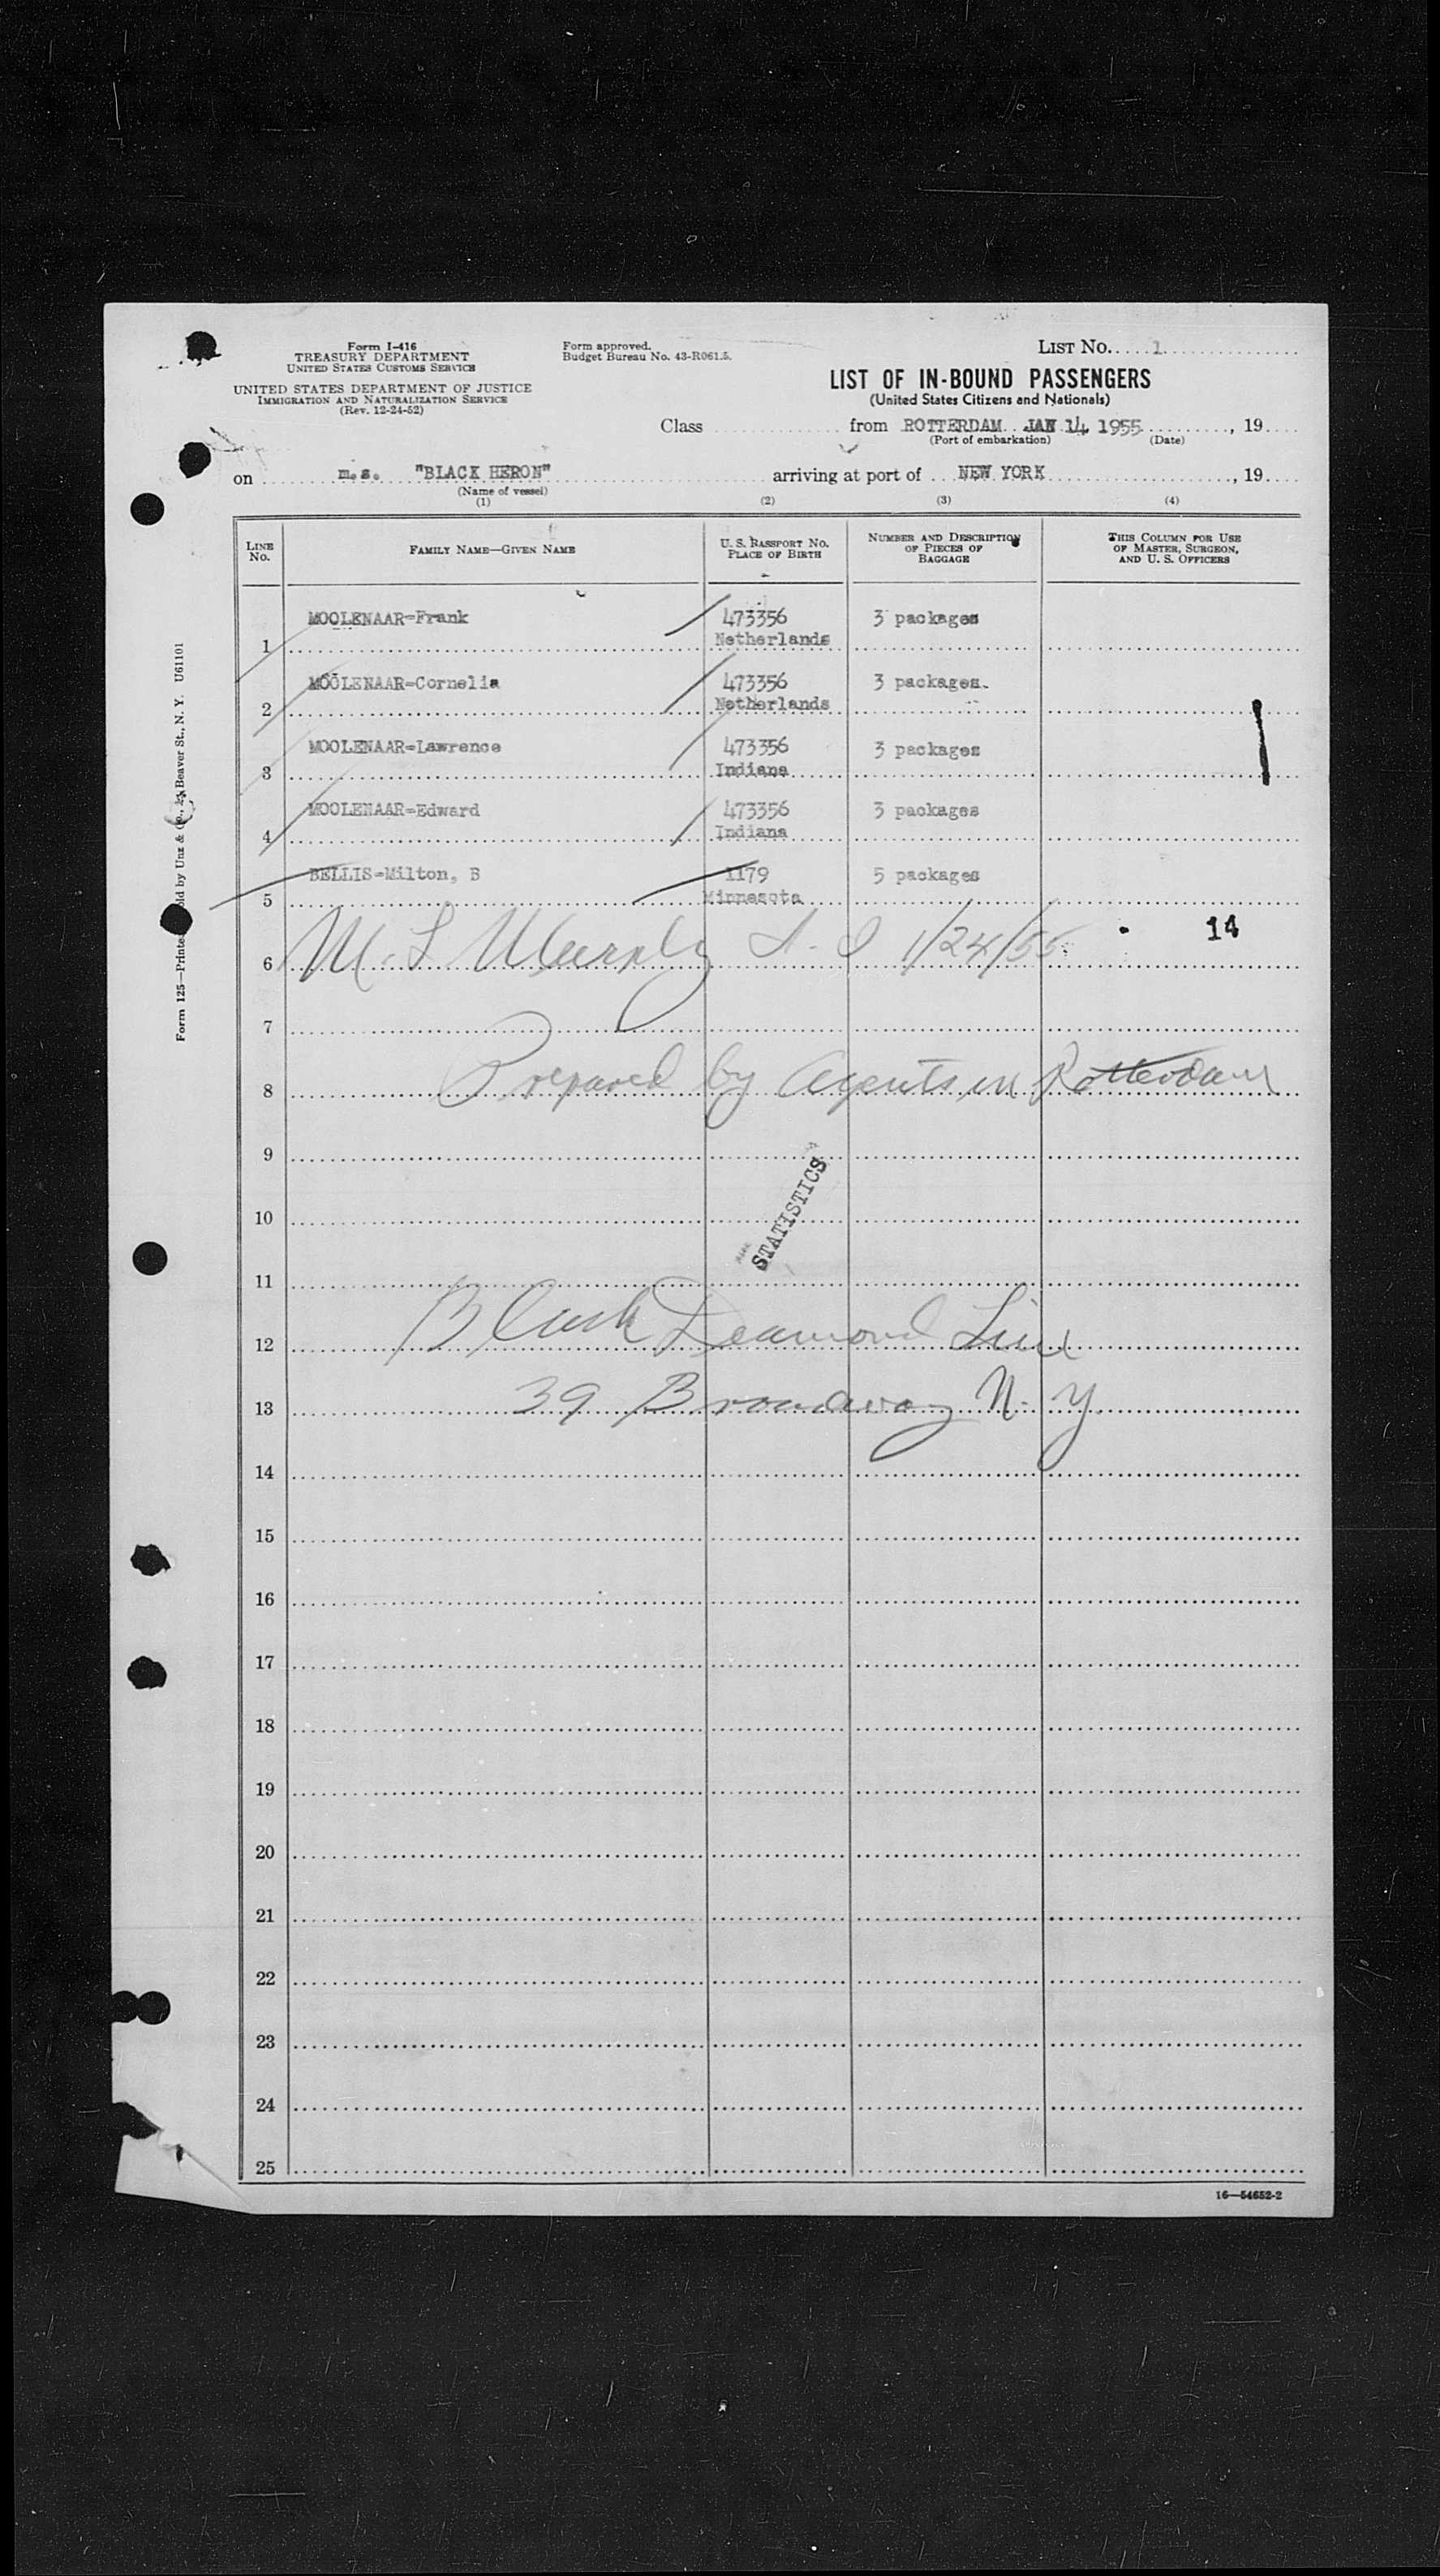 Form I-416
TREASURY DEPARTMENT
UNITED STATES CUSTOMS SERVICE
UNITED STATES DEPARTMENT OF JUSTICE
IMMIGRATION AND NATURALIZATION SERVICE
(Rev. 12-24-52)
Form approved.
Budget Bureau No. 43-R061.5.
LIST No. 1
LIST OF IN-BOUND PASSENGERS
(United States Citizens and Nationals)
Class from ROTTERDAM JAN 14 1955, 19
(Port of embarkation) (Date)
on m.s. "BLACK HERON" arriving at port of NEW YORK, 19
(Name of vessel)
(1) (2) (3) (4)
LINE No. FAMILY NAME—GIVEN NAME U. S. PASSPORT NO. PLACE OF BIRTH NUMBER AND DESCRIPTION OF PIECES OF BAGGAGE THIS COLUMN FOR USE OF MASTER, SURGEON, AND U. S. OFFICERS
1 MOOLENAAR=Frank 473356 Netherlands 3 packages
2 MOOLENAAR=Cornelia 473356 Netherlands 3 packages.
3 MOOLENAAR=Lawrence 473356 Indiana 3 packages
4 MOOLENAAR=Edward 473356 Indiana 3 packages
5 BELLIS=Milton, B 1179 Minnesota 5 packages
6 M. L Murphy 1/24/55 14
7
8 Prepared by Agents in Rotterdam
9
STATISTICS
10
11
12 Black Diamond Line
13 39 Broadway N. Y.
14
15
16
17
18
19
20
21
22
23
24
25
16—54652-2
Form 125—Printed Sold by Unz & Co., Beaver St., N. Y. U61101